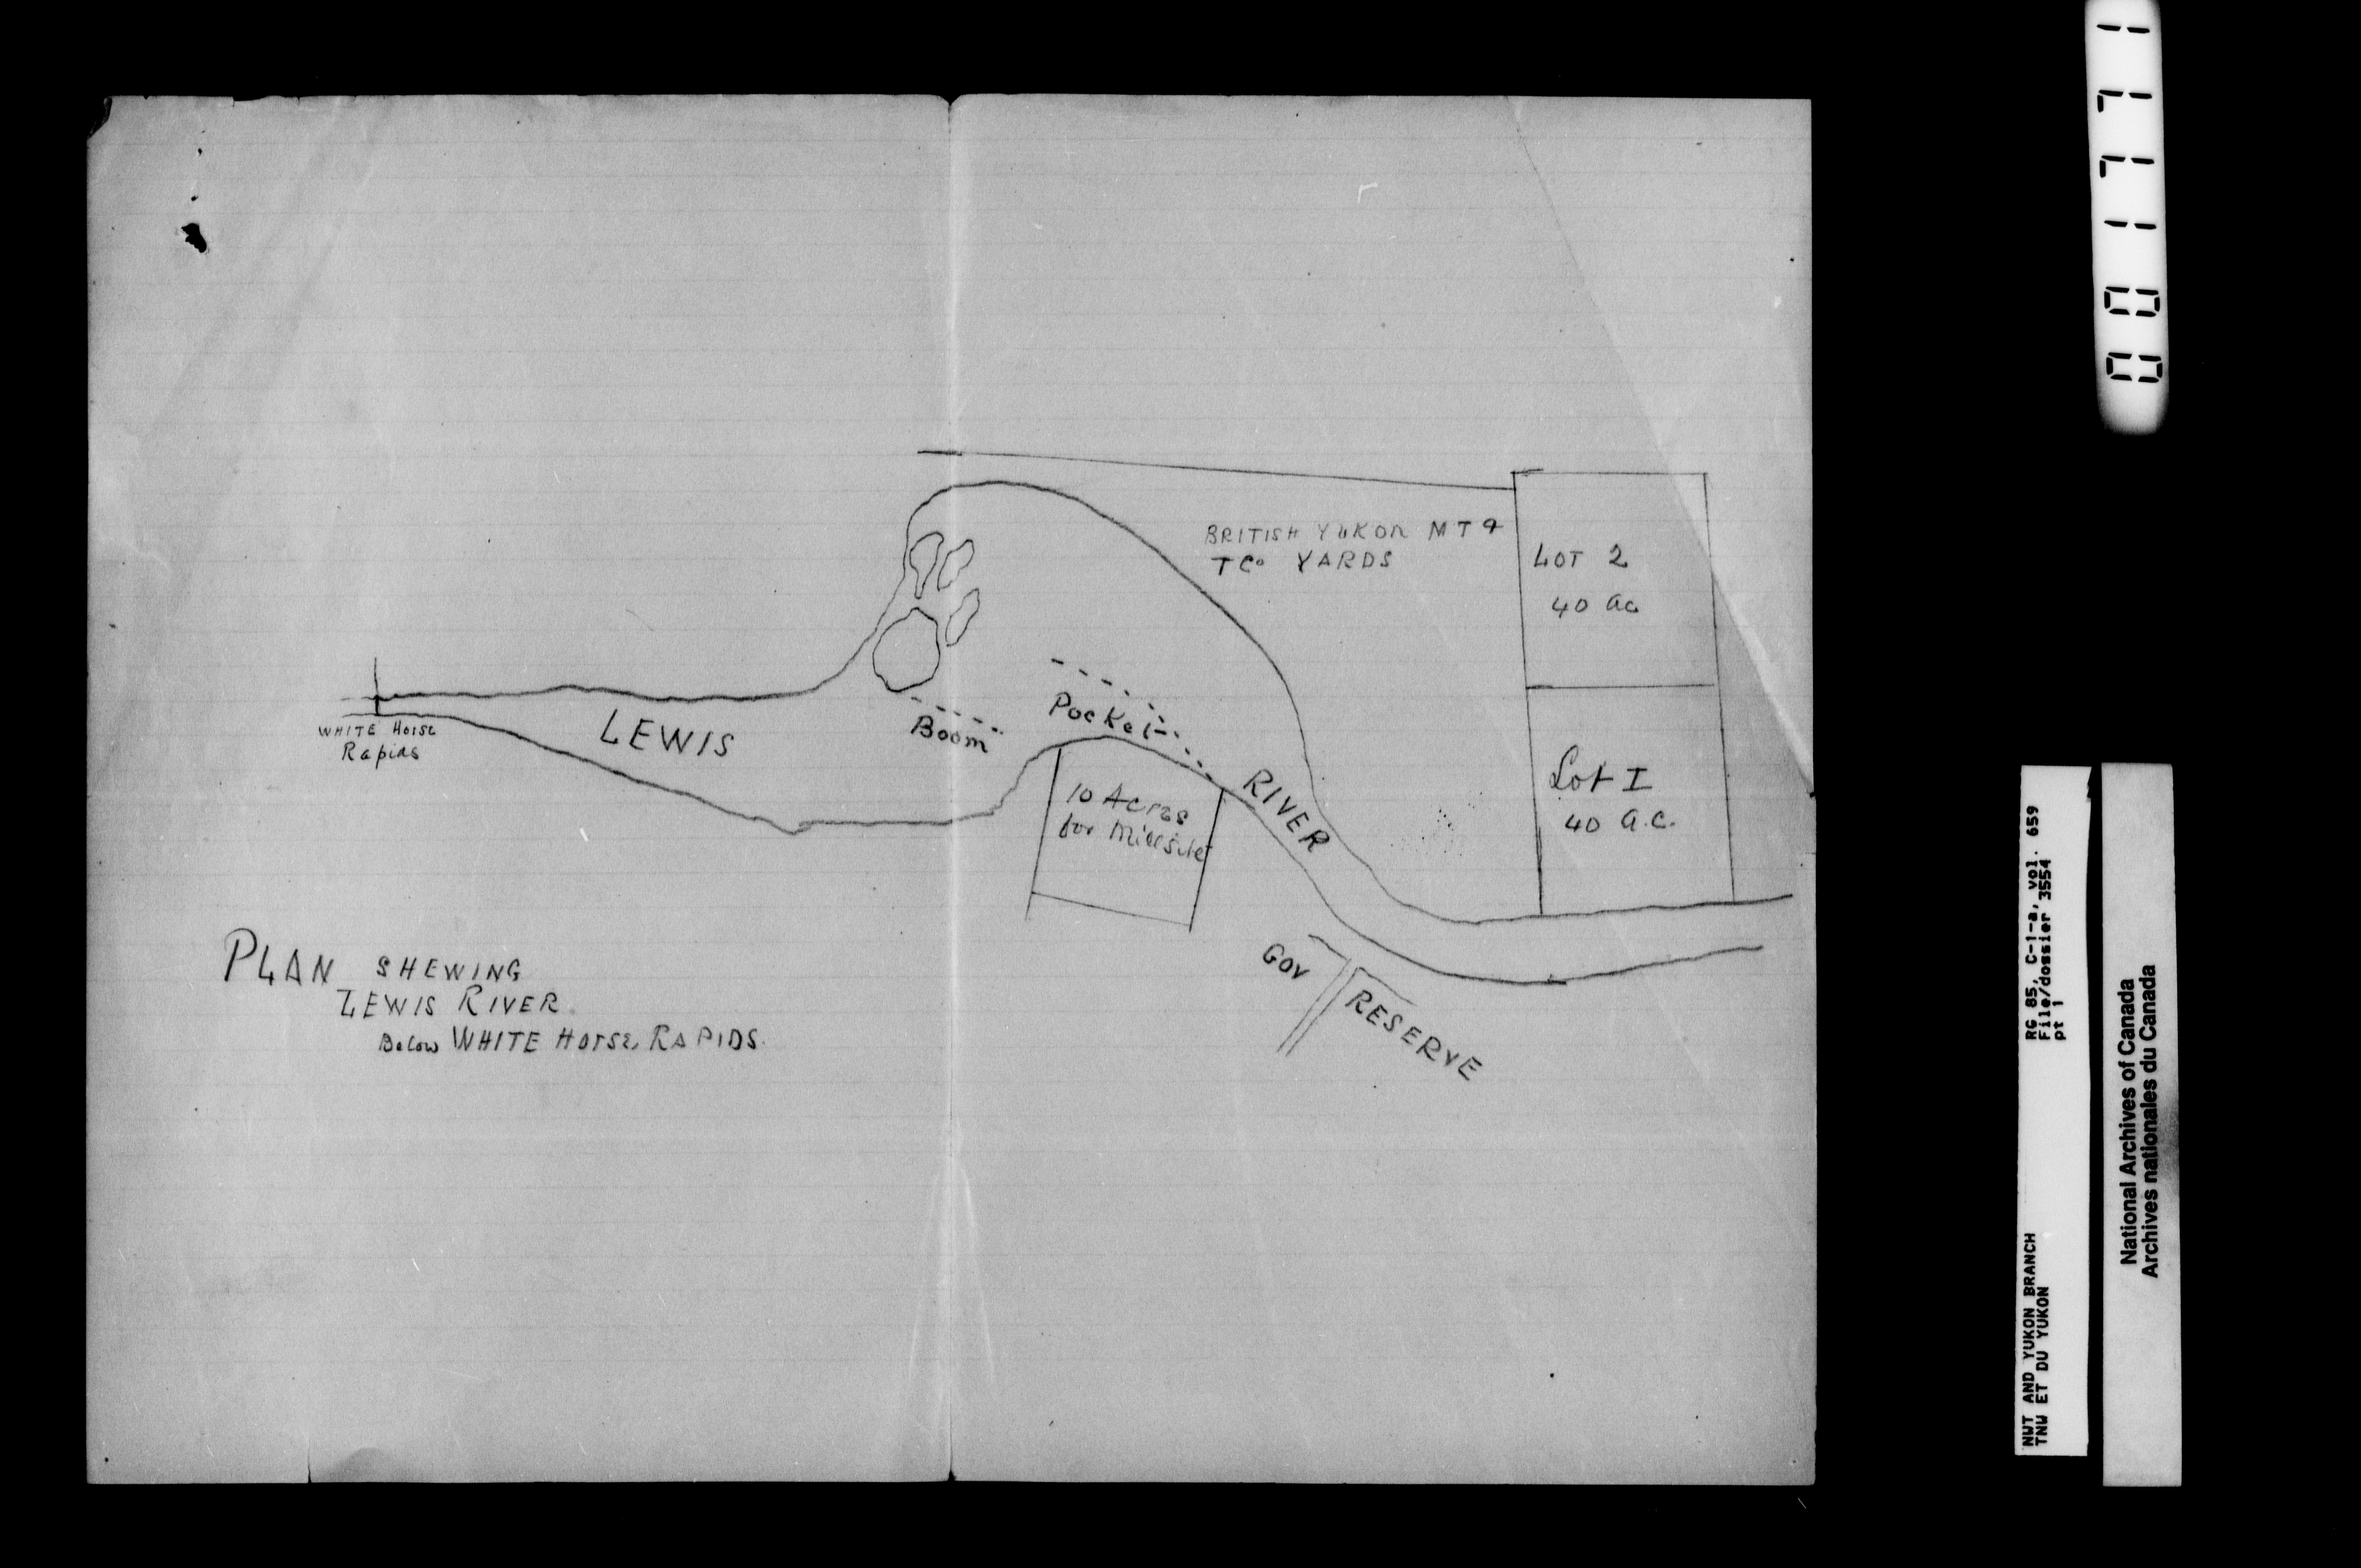 BRITISH YUKON M T &
T Co YARDS
LOT 2
40 ac
WHITE HORSE
Rapids
LEWIS
Boom
Pocket
RIVER
10 Acres
for Millsite
Lot I
40 a.c.
GOV
RESERVE
PLAN SHEWING
LEWIS RIVER
Below WHITE HORSE RAPIDS.
001771
RG 85, C-1-a, vol. 659
File/dossier 3554
pt 1
NWT AND YUKON BRANCH
TNW ET DU YUKON
National Archives of Canada
Archives nationales du Canada